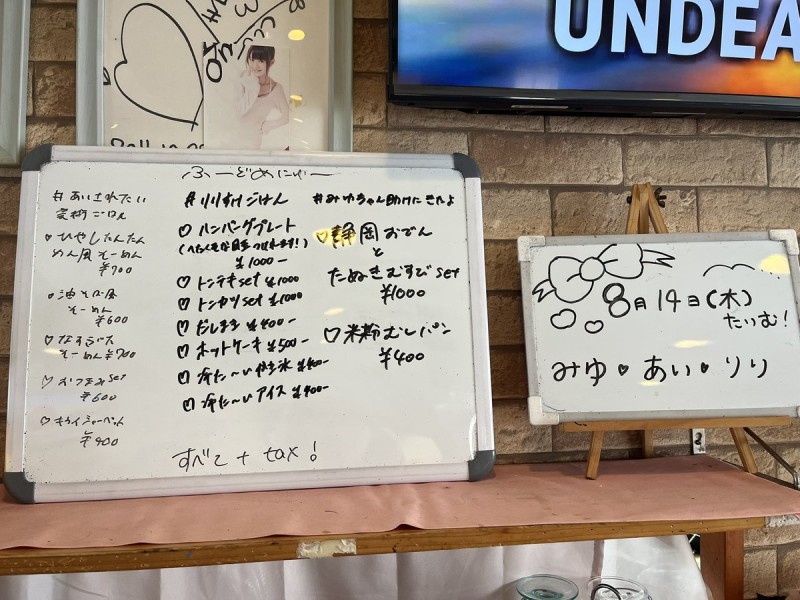 UNDEA
ふーどめにゅー
#あいされたい
ごはん
♡ひやしたんたん
めん風そーめん
¥700
♡油そば風
そーめん
¥600
そーめん¥700
♡おつまみset
¥600
¥400
#りりすけごはん
♡ハンバーグプレート
¥1000-
♡トンテキset ¥1000
♡トンカツset ¥1000
♡だしまき ¥400-
♡ホットケーキ ¥500-
♡冷た〜いやき氷 ¥400-
♡冷た〜いアイス ¥400-
#みゆちゃん助けにきたよ
♡静岡おでん
と
たぬきむすびset
¥1000
♡米粉むしパン
¥400
すべて + tax!
8月14日(木)
たいむ!
みゆ♡あい♡りり